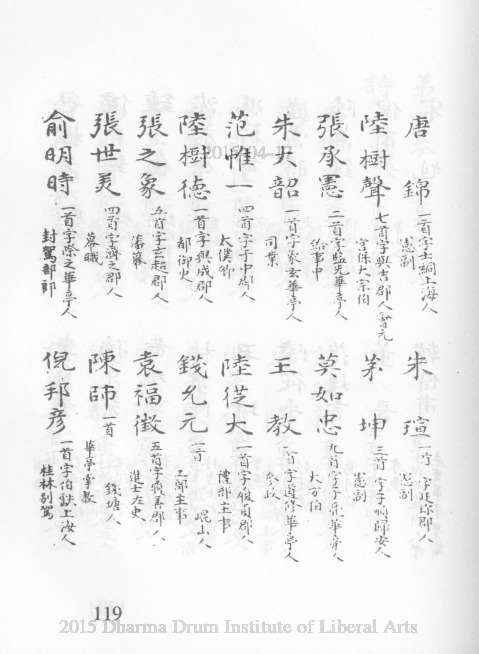 唐錦 一首字士綱上海人 憲副
朱瑄 一首 憲副
陸樹聲 七首字與吉郡人會元 宮保大宗伯
茅坤 三首字子順歸安人 憲副
張承憲 二首字監先華亭人 給事中
莫如忠 九首字子良華亭人 大方伯
朱大韶 一首字象玄華亭人 司業
王教 一首字 華亭人 參政
范惟一 四首字于中郡人 太僕卿
陸從大 一首字 郡人 禮部主事
陸樹德 一首字與成郡人 都御史
錢允元 一首 崑山人 工部主事
張之象 五首字玄超郡人 藩幕
袁福徵 五首字履善郡人 進士左史
張世美 四首字濟之郡人 幕職
陳師 一首 錢塘人 華亭掌教
俞明時 一首字際之華亭人 封駕部郎
倪邦彥 一首字伯 上海人 桂林別駕
119
2015-04-17
2015 Dharma Drum Institute of Liberal Arts